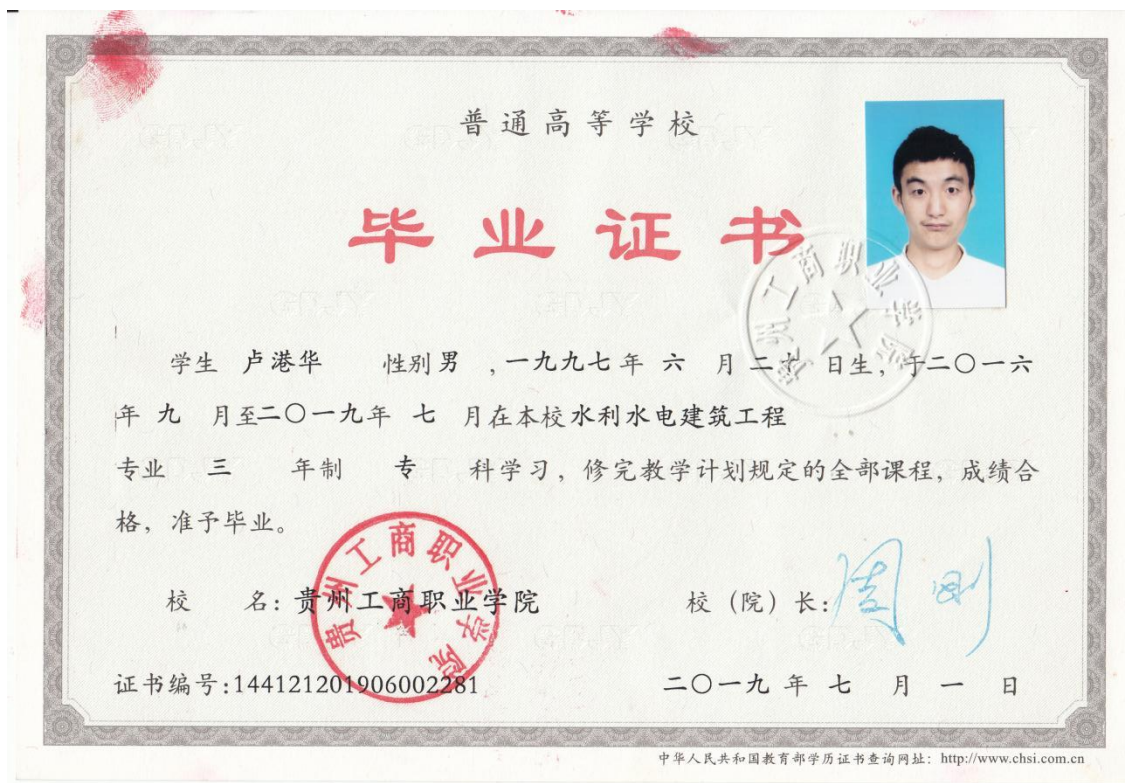 普通高等学校
毕业证书
学生 卢港华 性别 男 ，一九九七年 六 月 二 日生，于二〇一六
年 九 月至二〇一九年 七 月在本校水利水电建筑工程
专业 三 年制 专 科学习，修完教学计划规定的全部课程，成绩合
格，准予毕业。
贵州工商职业学院
贵州工商职业学院
校 名：贵州工商职业学院 校（院）长：周刚
证书编号：144121201906002281 二〇一九 年 七 月 一 日
中华人民共和国教育部学历证书查询网址：http://www.chsi.com.cn